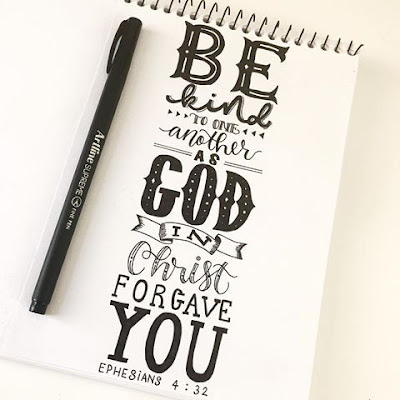 BE
kind
TO ONE
another
AS
GOD
IN
Christ
FORGAVE
YOU
EPHESIANS 4:32
Artline SUPREME FINE PEN